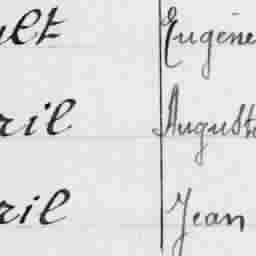 ult Eugène
ril Auguste
ril Jean